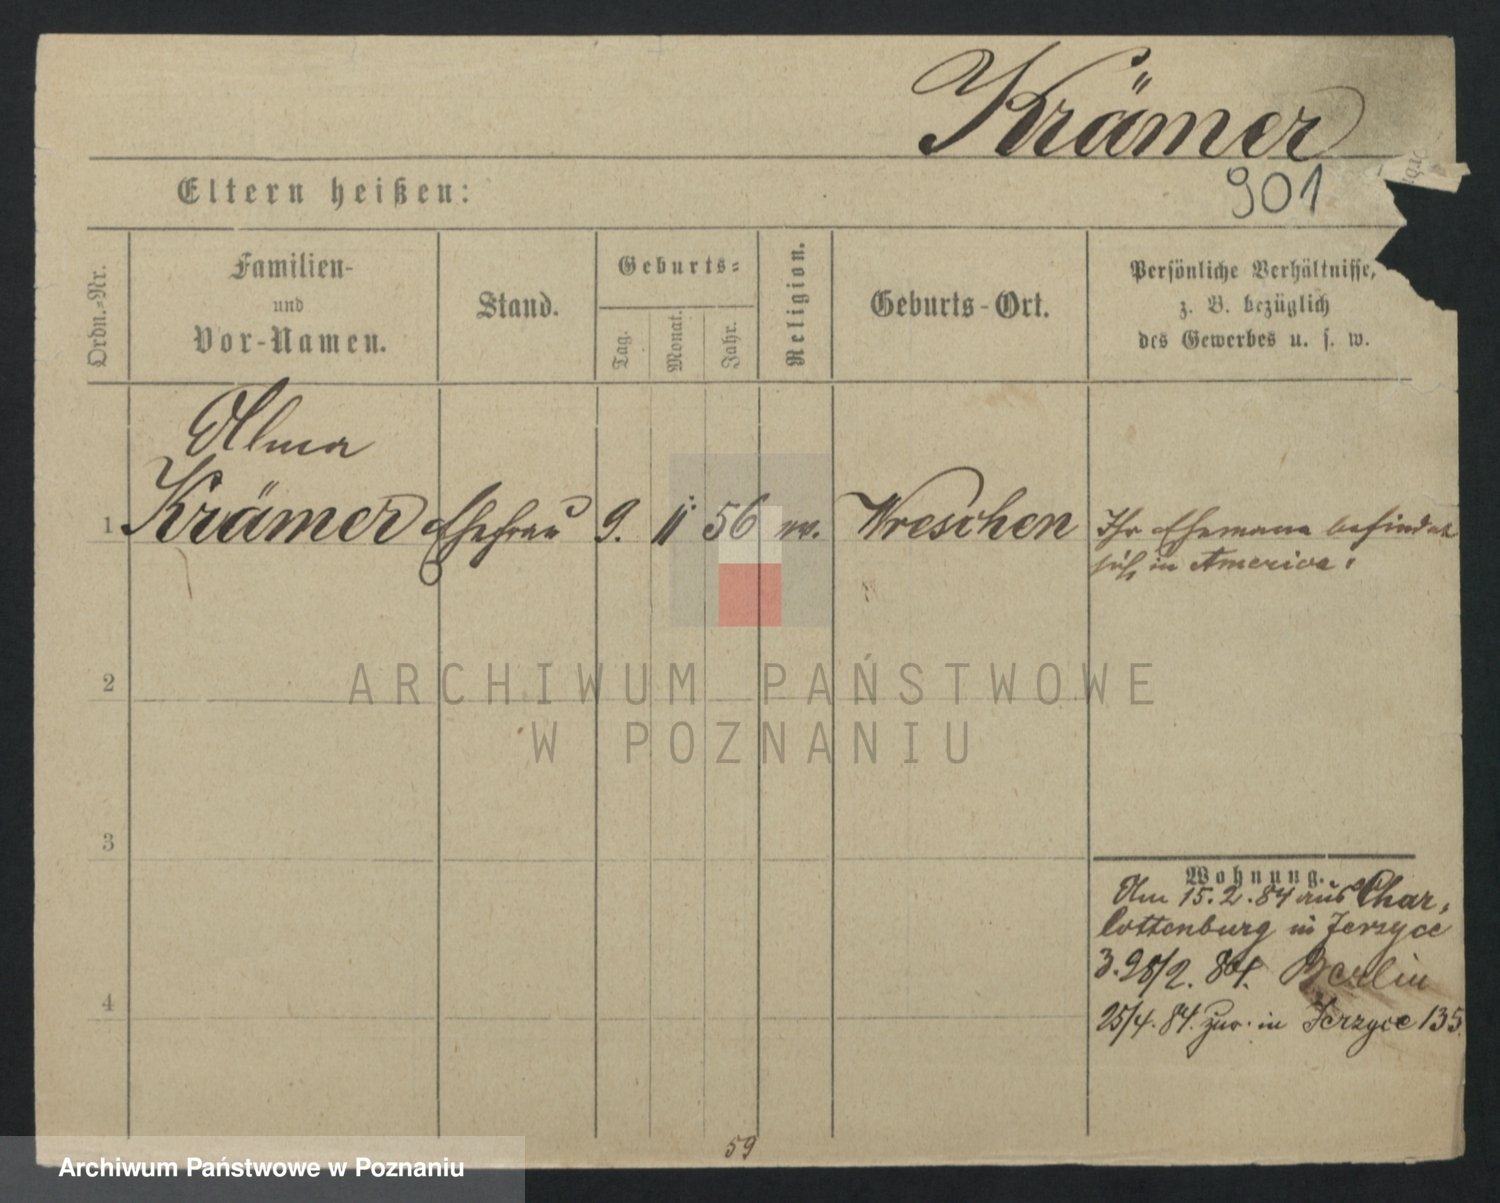 Krämer
901
Eltern heißen:
Ordn.-Nr.
Familien-
und
Vor-Namen.
Stand.
Geburts-
Tag.
Monat.
Jahr.
Religion.
Geburts-Ort.
Persönliche Verhältnisse,
z. B. bezüglich
des Gewerbes u. s. w.
Alma
1 Krämer Ehefrau 9. 11 56 ev. Wreschen Ihr Ehemann befindet
sich in America.
2
ARCHIWUM PAŃSTWOWE
W POZNANIU
3
Wohnung.
Am 15.2.84 aus Char-
lottenburg in Jerzyce
3. 28/2. 84. Berlin
4
25/4. 84. zur. in Jerzyce 135
59
Archiwum Państwowe w Poznaniu